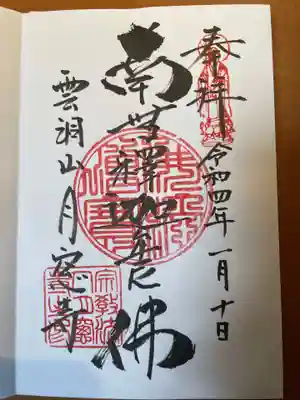 奉拝
令和四年一月十日
南無釋迦牟尼佛
雲洞山
月窓寺